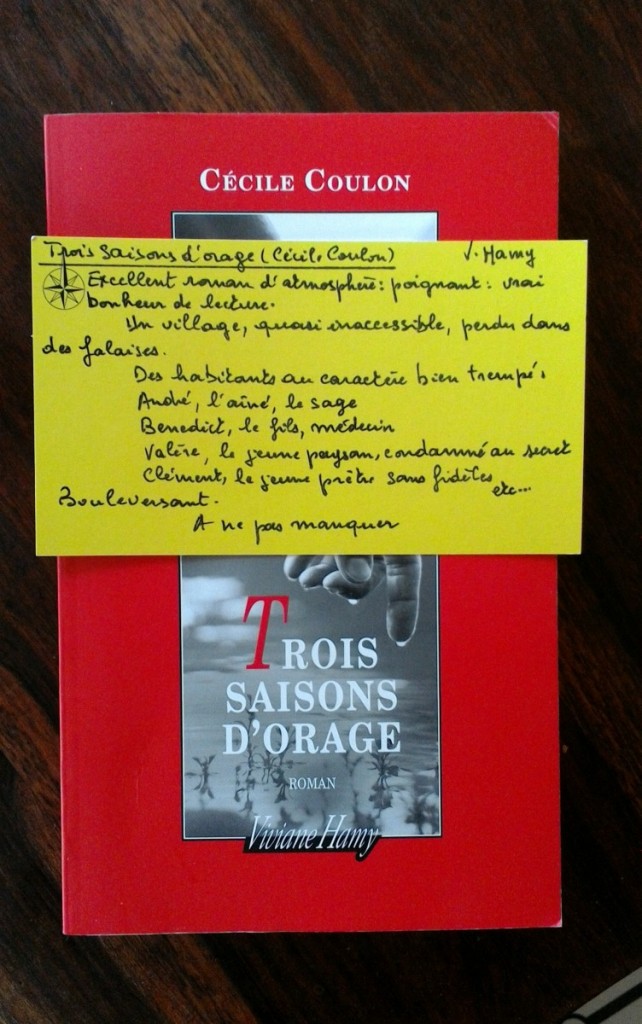 CÉCILE COULON
Trois saisons d'orage (Cécile Coulon) V. Hamy
Excellent roman d'atmosphère : poignant : vrai
bonheur de lecture.
Un village, quasi inaccessible, perdu dans
des falaises.
Des habitants au caractère bien trempé :
André, l'aîné, le sage
Benedict, le fils, médecin
Valère, le jeune paysan, condamné au secret
Clément, le jeune prêtre sans fidèles
etc...
Bouleversant.
A ne pas manquer
TROIS
SAISONS
D'ORAGE
ROMAN
Viviane Hamy